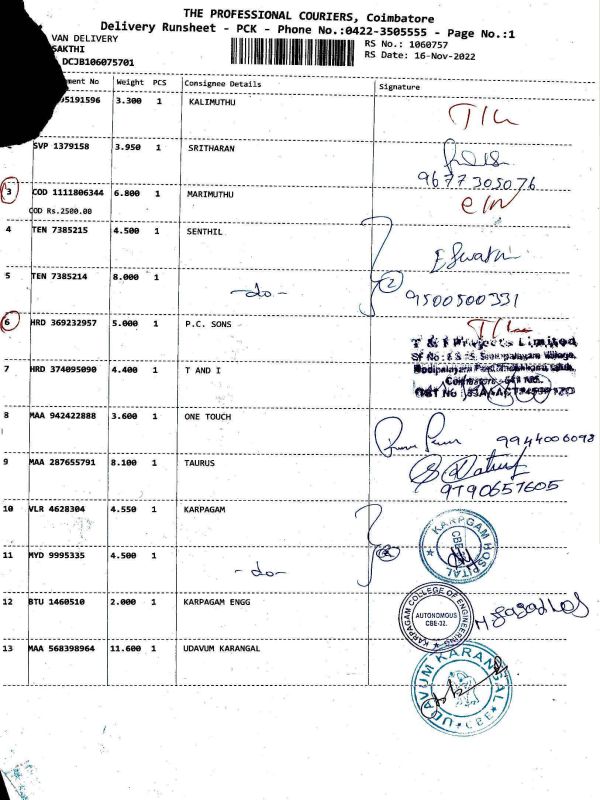 THE PROFESSIONAL COURIERS, Coimbatore
Delivery Runsheet - PCK - Phone No.:0422-3505555 - Page No.:1
VAN DELIVERY
SAKTHI
DCJB106075701
RS No.: 1060757
RS Date: 16-Nov-2022
No Weight PCS Consignee Details Signature
3.300 1 KALIMUTHU
SVP 1379158 3.950 1 SRITHARAN
9677305076
3 COD 1111806344 6.800 1 MARIMUTHU
COD Rs.2500.00
4 TEN 7385215 4.500 1 SENTHIL
E Swathi
5 TEN 7385214 8.000 1 -do- 2
9500500331
6 HRD 369232957 5.000 1 P.C. SONS
T & I Projects Limited
7 HRD 374095090 4.400 1 T AND I
8 MAA 942422888 3.600 1 ONE TOUCH
9944006098
9 MAA 287655791 8.100 1 TAURUS
9790657605
10 VLR 4628304 4.550 1 KARPAGAM
KARPGAM HOSPITAL
11 MYD 9995335 4.500 1 -do-
12 BTU 1460510 2.000 1 KARPAGAM ENGG
KARPAGAM COLLEGE OF ENGINEERING
AUTONOMOUS
CBE-32.
13 MAA 568398964 11.600 1 UDAVUM KARANGAL
UDAVUM KARANGAL